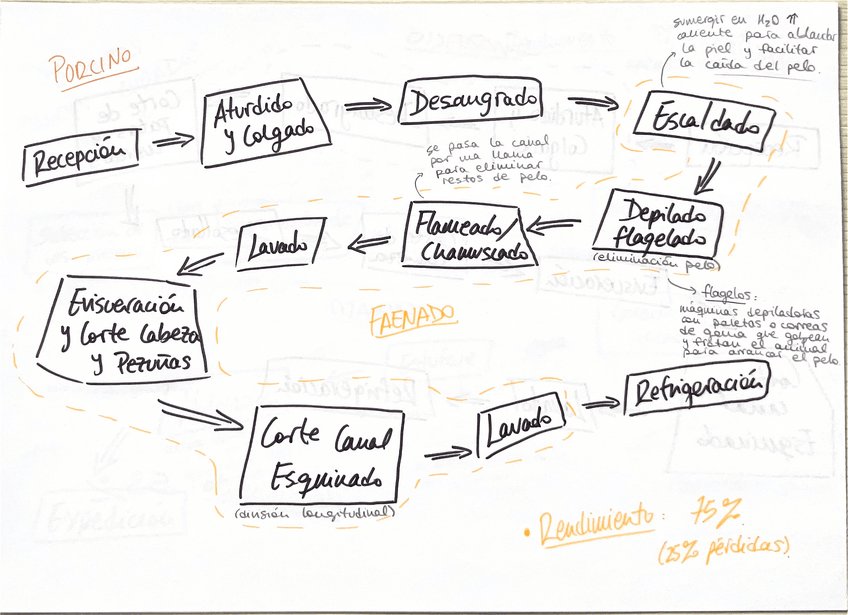 PORCINO
Recepción
Aturdido
y Colgado
Desangrado
sumergir en H2O ↑
caliente para ablandar
la piel y facilitar
la caída del pelo.
Escaldado
Depilado
flagelado
(eliminación pelo)
flagelos:
máquinas depiladoras
con paletas o correas
de goma que golpean
y frotan el animal
para arrancar el pelo
se pasa la canal
por una llama
para eliminar
restos de pelo.
Flameado/
Chamuscado
Lavado
Evisceración
y Corte Cabeza
y Pezuñas
FAENADO
Corte Canal
Esquinado
(división longitudinal)
Lavado
Refrigeración
• Rendimiento: 75%
(25% pérdidas)